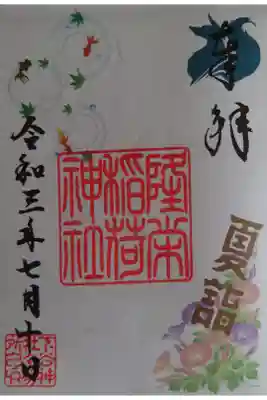 奉拝
夏詣
隆栄
稲荷
神社
令和三年七月十日